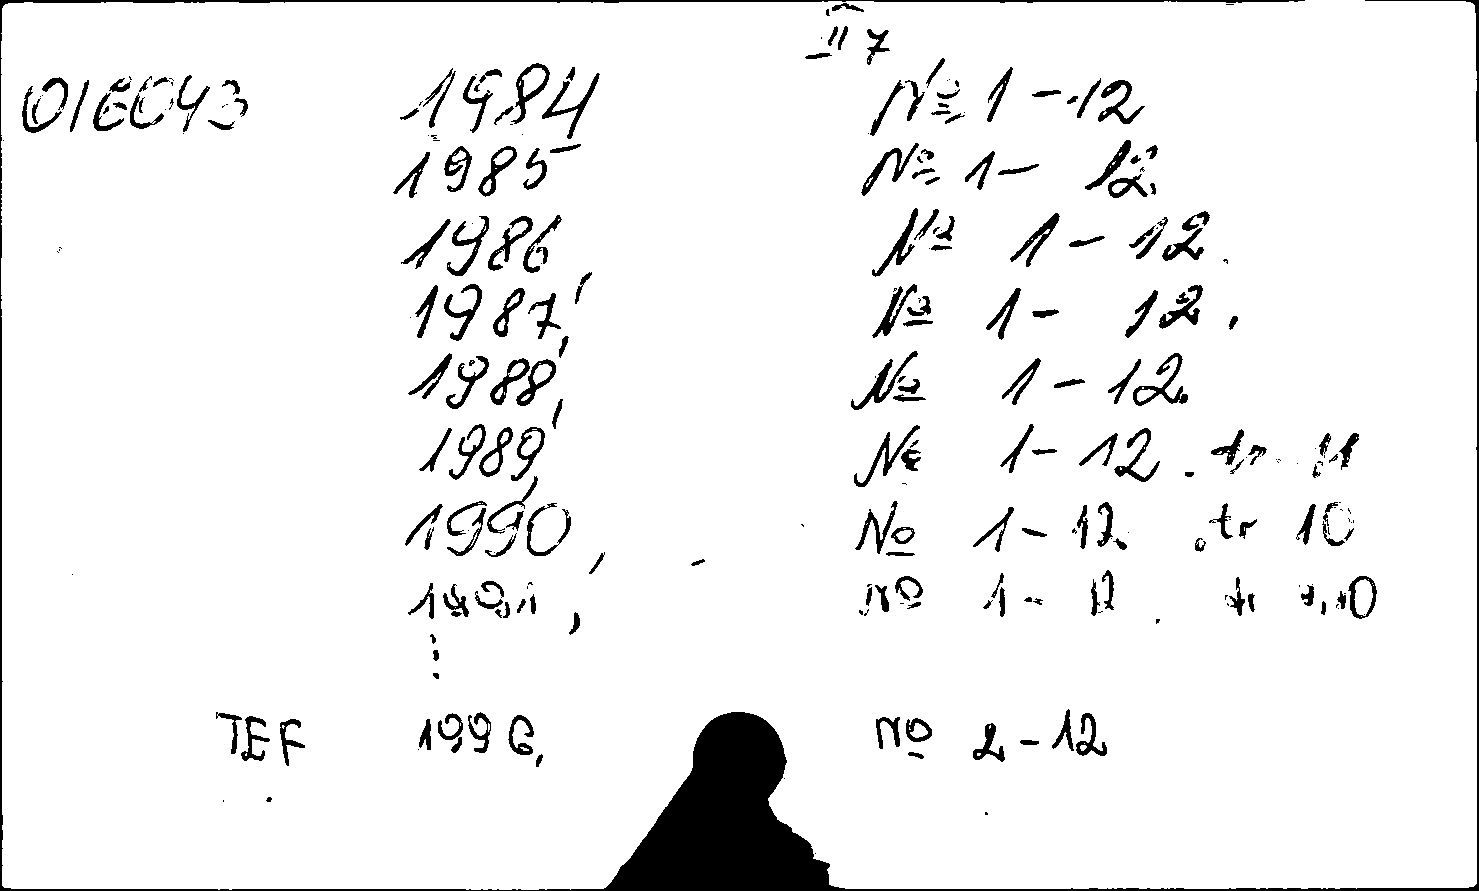 II 7
016043 1984 № 1-12
1985 № 1- 12.
1986, № 1-12.
1987, № 1- 12.
1988, № 1-12.
1989, № 1-12. tr. 11
1990, - № 1-12. tr 10
1991, № 1-12. tr
⋮
TEF 1996, № 2-12